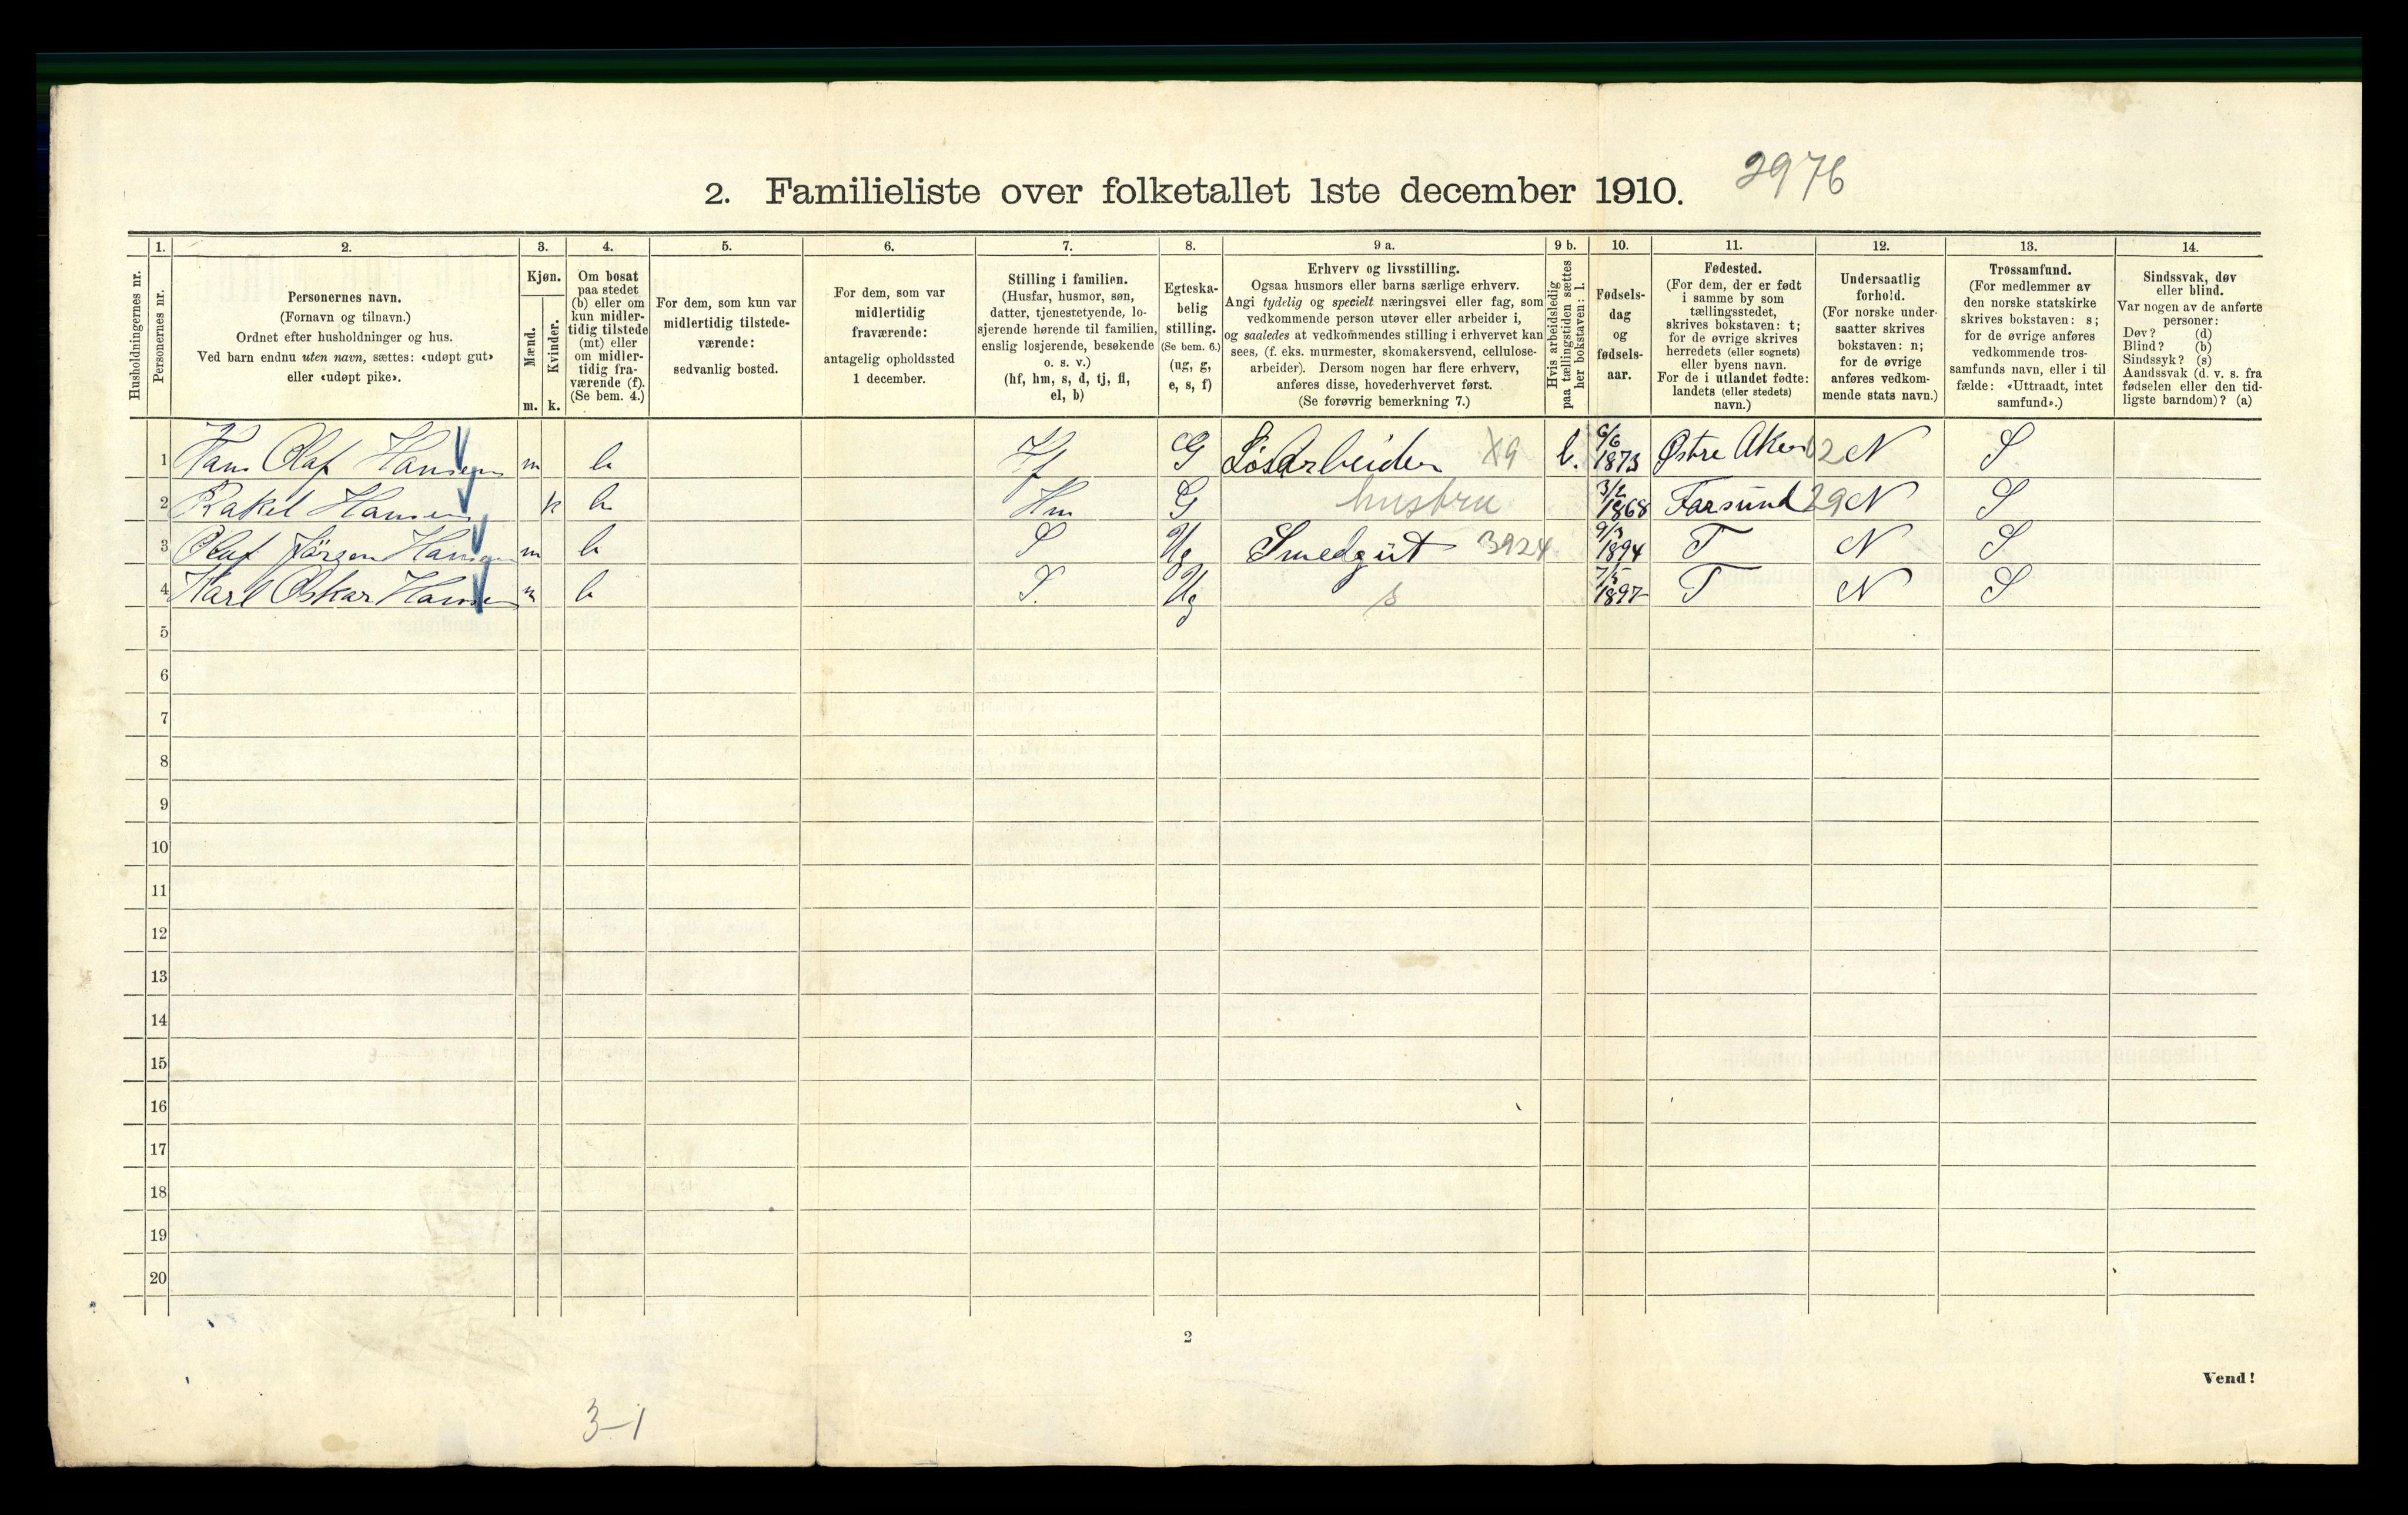 2976
2. Familieliste over folketallet 1ste december 1910.
1. 2. 3. 4. 5. 6. 7. 8. 9 a. 9 b. 10. 11. 12. 13. 14.
Husholdningernes nr.
Personernes nr.
Personernes navn.
(Fornavn og tilnavn.)
Ordnet efter husholdninger og hus.
Ved barn endnu uten navn, sættes: «udøpt gut»
eller «udøpt pike».
Kjøn.
Mænd.
Kvinder.
m. k.
Om bosat
paa stedet
(b) eller om
kun midler-
tidig tilstede
(mt) eller
om midler-
tidig fra-
værende (f).
(Se bem. 4.)
For dem, som kun var
midlertidig tilstede-
værende:
sedvanlig bosted.
For dem, som var
midlertidig
fraværende:
antagelig opholdssted
1 december.
Stilling i familien.
(Husfar, husmor, søn,
datter, tjenestetyende, lo-
sjerende hørende til familien,
enslig losjerende, besøkende
o. s. v.)
(hf, hm, s, d, tj, fl,
el, b)
Egteska-
belig
stilling.
(Se bem. 6.)
(ug, g,
e, s, f)
Erhverv og livsstilling.
Ogsaa husmors eller barns særlige erhverv.
Angi tydelig og specielt næringsvei eller fag, som
vedkommende person utøver eller arbeider i,
og saaledes at vedkommendes stilling i erhvervet kan
sees, (f. eks. murmester, skomakersvend, cellulose-
arbeider). Dersom nogen har flere erhverv,
anføres disse, hovederhvervet først.
(Se forøvrig bemerkning 7.)
Hvis arbeidsledig
paa tællingstiden sættes
her bokstaven: l.
Fødsels-
dag
og
fødsels-
aar.
Fødested.
(For dem, der er født
i samme by som
tællingsstedet,
skrives bokstaven: t;
for de øvrige skrives
herredets (eller sognets)
eller byens navn.
For de i utlandet fødte:
landets (eller stedets)
navn.)
Undersaatlig
forhold.
(For norske under-
saatter skrives
bokstaven: n;
for de øvrige
anføres vedkom-
mende stats navn.)
Trossamfund.
(For medlemmer av
den norske statskirke
skrives bokstaven: s;
for de øvrige anføres
vedkommende tros-
samfunds navn, eller i til
fælde: «Uttraadt, intet
samfund».)
Sindssvak, døv
eller blind.
Var nogen av de anførte
personer:
Døv? (d)
Blind? (b)
Sindssyk? (s)
Aandssvak (d. v. s. fra
fødselen eller den tid-
ligste barndom)? (a)
1 Hans Olaf Hansen m b Hf G Løsarbeider X9 l. 6/6 1873 Østre Aker 02 N S
2 Rakel Hansen k b Hm G hustru 3/2 1868 Farsund 29 N S
3 Oluf Jörgen Hansen m b S Ug Smedgut 3924 9/3 1894 T N S
4 Karl Oskar Hansen m b S. Ug s 7/5 1897 T N S
5
6
7
8
9
10
11
12
13
14
15
16
17
18
19
20
2
Vend!
3-1